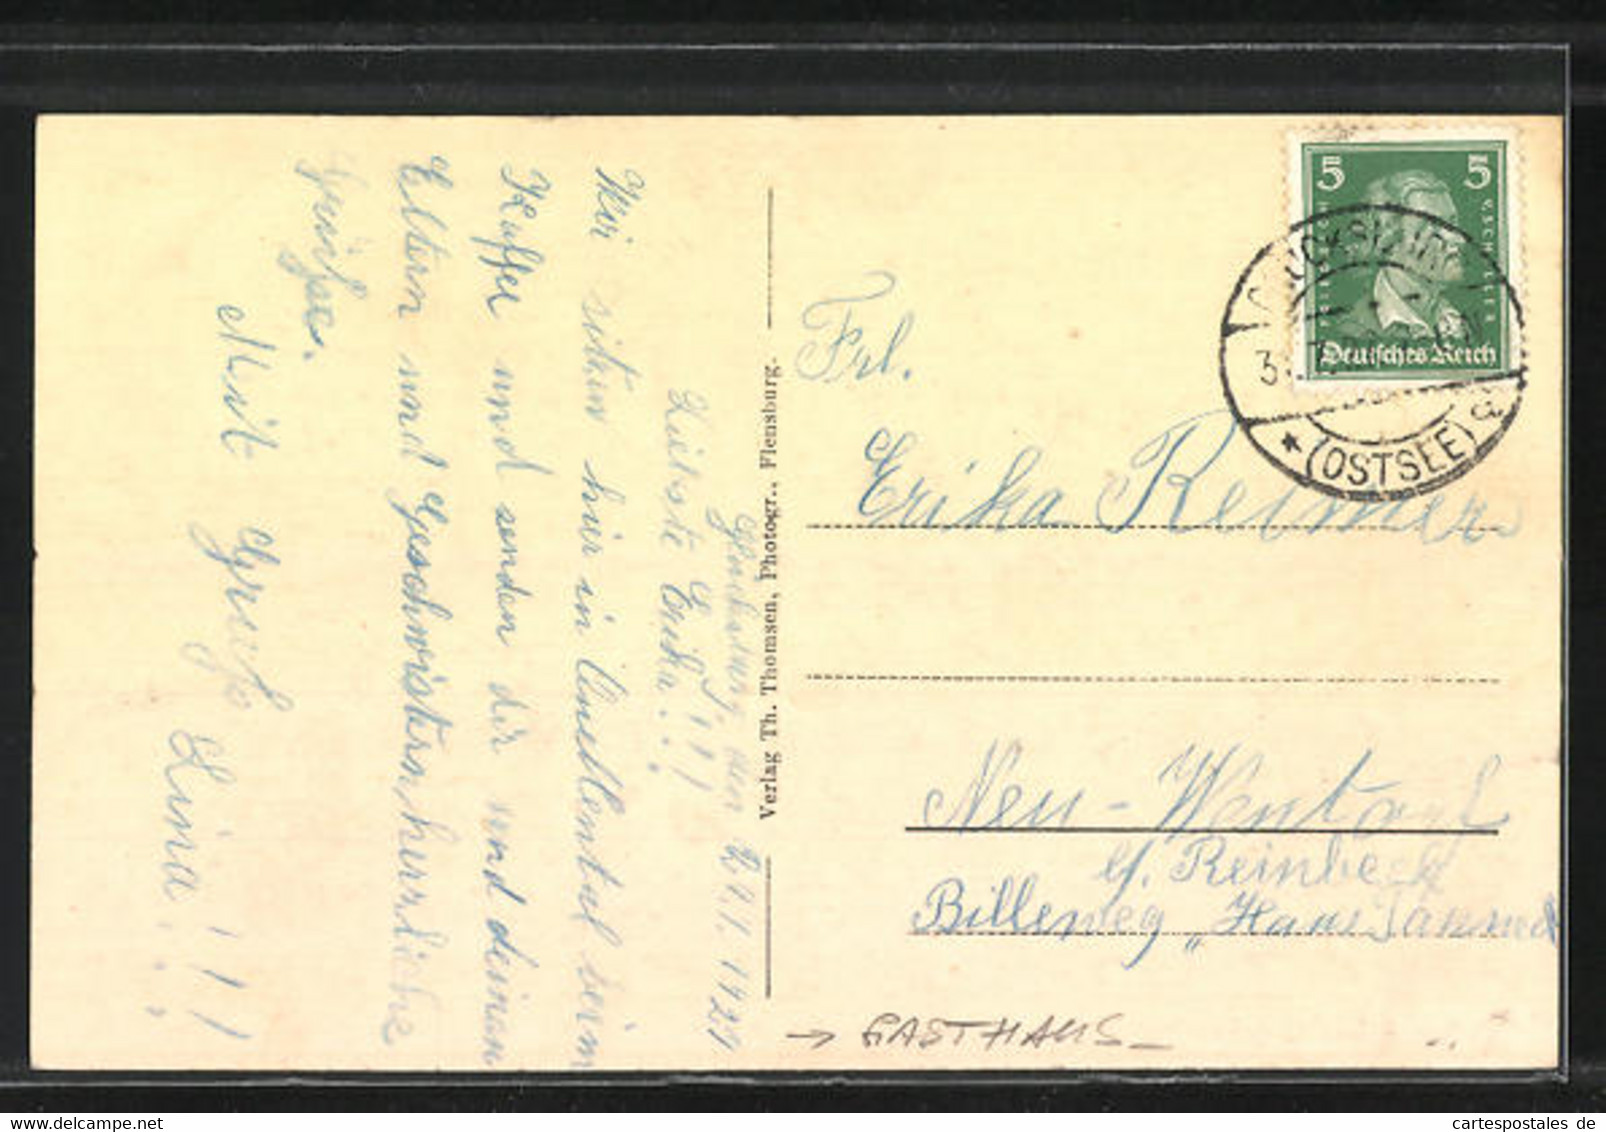 Glücksburg, den 29.1.1929
Liebste Erika!!!
Wir sitzen hier in Quellental beim
Kaffee und senden dir und deinen
Eltern und Geschwistern herzliche
Grüße.
Mit Gruß
Lina!!!
Verlag Th. Thomsen, Photogr., Flensburg.
5 5
Deutsches Reich
GLÜCKSBURG
(OSTSEE) a
Frl.
Erika Reimer
Neu-Wentorf
b/. Reinbeck
Billeweg „Hans
→ GASTHAUS_
cartespostales de